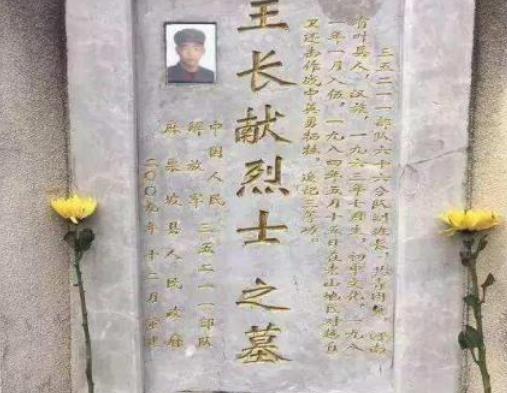 三五二一一部队六十六分队副班长，共青团员，河南
省叶县人，汉族，一九六三年七月生，初中文化，一九八
一年一月入伍，一九八四年五月十五日在老山地区对越自
卫还击作战中英勇牺牲。追记三等功。
王长献烈士之墓
中国人民
解放军三五二一一部队
麻栗坡县人民政府
二〇〇九年十二月重建